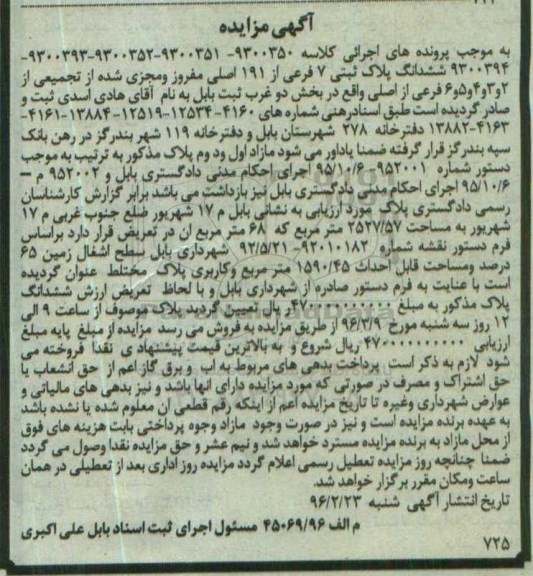 آگهی مزایده
به موجب پرونده های اجرائی کلاسه ۹۳۰۰۳۵۰- ۹۳۰۰۳۵۱-۹۳۰۰۳۵۲-۹۳۰۰۳۹۳-
۹۳۰۰۳۹۴ ششدانگ پلاک ثبتی ۷ فرعی از ۱۹۱ اصلی مفروز ومجزی شده از تجمیعی از
۲و۳و۴و۵و۶ فرعی از اصلی واقع در بخش دو غرب ثبت بابل به نام آقای هادی اسدی ثبت و
صادر گردیده است طبق اسنادرهنی شماره های ۴۱۶۰-۱۲۵۳۴-۱۲۵۱۹-۱۳۸۸۴-۴۱۶۱-
۴۱۶۳-۱۳۸۸۲ دفترخانه ۲۷۸ شهرستان بابل و دفترخانه ۱۱۹ شهر بندرگز در رهن بانک
سپه بندرگز قرار گرفته ضمنا یاداور می شود مازاد اول ود وم پلاک مذکور به ترتیب به موجب
دستور شماره ۹۵۲۰۰۱-۹۵/۱۰/۶ اجرای احکام مدنی دادگستری بابل و ۹۵۲۰۰۲ م –
۹۵/۱۰/۶ اجرای احکام مدنی دادگستری بابل نیز بازداشت می باشد برابر گزارش کارشناسان
رسمی دادگستری پلاک مورد ارزیابی به نشانی بابل م ۱۷ شهریور ضلع جنوب غربی م ۱۷
شهریور به مساحت ۲۵۲۷/۵۷ متر مربع که ۶۸ متر مربع ان در تعریض قرار دارد براساس
فرم دستور نقشه شماره ۹۲۰۱۰۱۸۲- ۹۲/۵/۲۱ شهرداری بابل سطح اشغال زمین ۶۵
درصد ومساحت قابل احداث ۱۵۹۰/۴۵ متر مربع وکاربری پلاک مختلط عنوان گردیده
است با عنایت به فرم دستور صادره از شهرداری بابل و با لحاظ تعریض ارزش ششدانگ
پلاک مذکور به مبلغ ۴۷۰۰۰۰۰۰۰۰۰۰ ریال تعیین گردید پلاک موصوف از ساعت ۹ الی
۱۲ روز سه شنبه مورخ ۹۶/۳/۹ از طریق مزایده به فروش می رسد مزایده از مبلغ پایه مبلغ
ارزیابی ۴۷۰۰۰۰۰۰۰۰۰۰ ریال شروع و به بالاترین قیمت پیشنهادی نقدا فروخته می
شود لازم به ذکر است پرداخت بدهی های مربوط به اب و برق گاز اعم از حق انشعاب یا
حق اشتراک و مصرف در صورتی که مورد مزایده دارای انها باشد و نیز بدهی های مالیاتی و
عوارض شهرداری وغیره تا تاریخ مزایده اعم از اینکه رقم قطعی ان معلوم شده یا نشده باشد
به عهده برنده مزایده است و نیز در صورت وجود مازاد وجوه پرداختی بابت هزینه های فوق
از محل مازاد به برنده مزایده مسترد خواهد شد و نیم عشر و حق مزایده نقدا وصول می گردد
ضمنا چنانچه روز مزایده تعطیل رسمی اعلام گردد مزایده روز اداری بعد از تعطیلی در همان
ساعت ومکان مقرر برگزار خواهد شد.
تاریخ انتشار آگهی شنبه ۹۶/۲/۲۳
م الف ۴۵۰۶۹/۹۶ مسئول اجرای ثبت اسناد بابل علی اکبری
۷۲۵